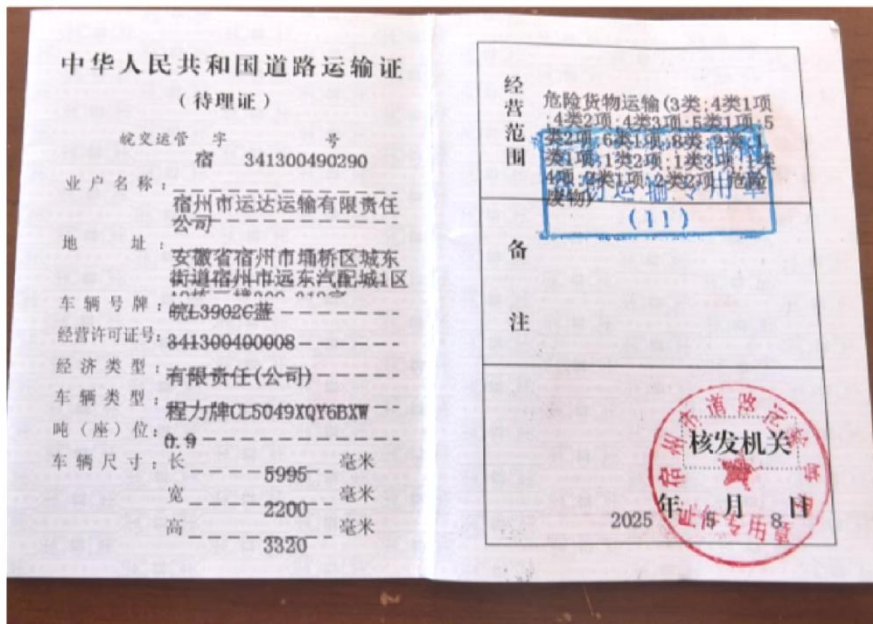 中华人民共和国道路运输证
(待理证)
皖交运管 字 号
宿 341300490290
业户名称:
宿州市运达运输有限责任
公司
地 址:
安徽省宿州市埇桥区城东
街道宿州市远东汽配城1区
车辆号牌:皖L3902C蓝
经营许可证号:341300400008
经济类型:有限责任(公司)
车辆类型:程力牌CL5049XQY6BXW
吨(座)位:0.9
车辆尺寸:长 5995 毫米
宽 2200 毫米
高 3320 毫米
经营范围
危险货物运输(3类;4类1项
;4类2项;4类3项;5类1项;5
类2项;6类1项;8类;9类;1
类1项;1类2项;1类3项;1类
4项;2类1项;2类2项;危险
废物)
输专用章
(11)
备注
宿州市道路运输管
核发机关
2025年5月8日
证件专用章